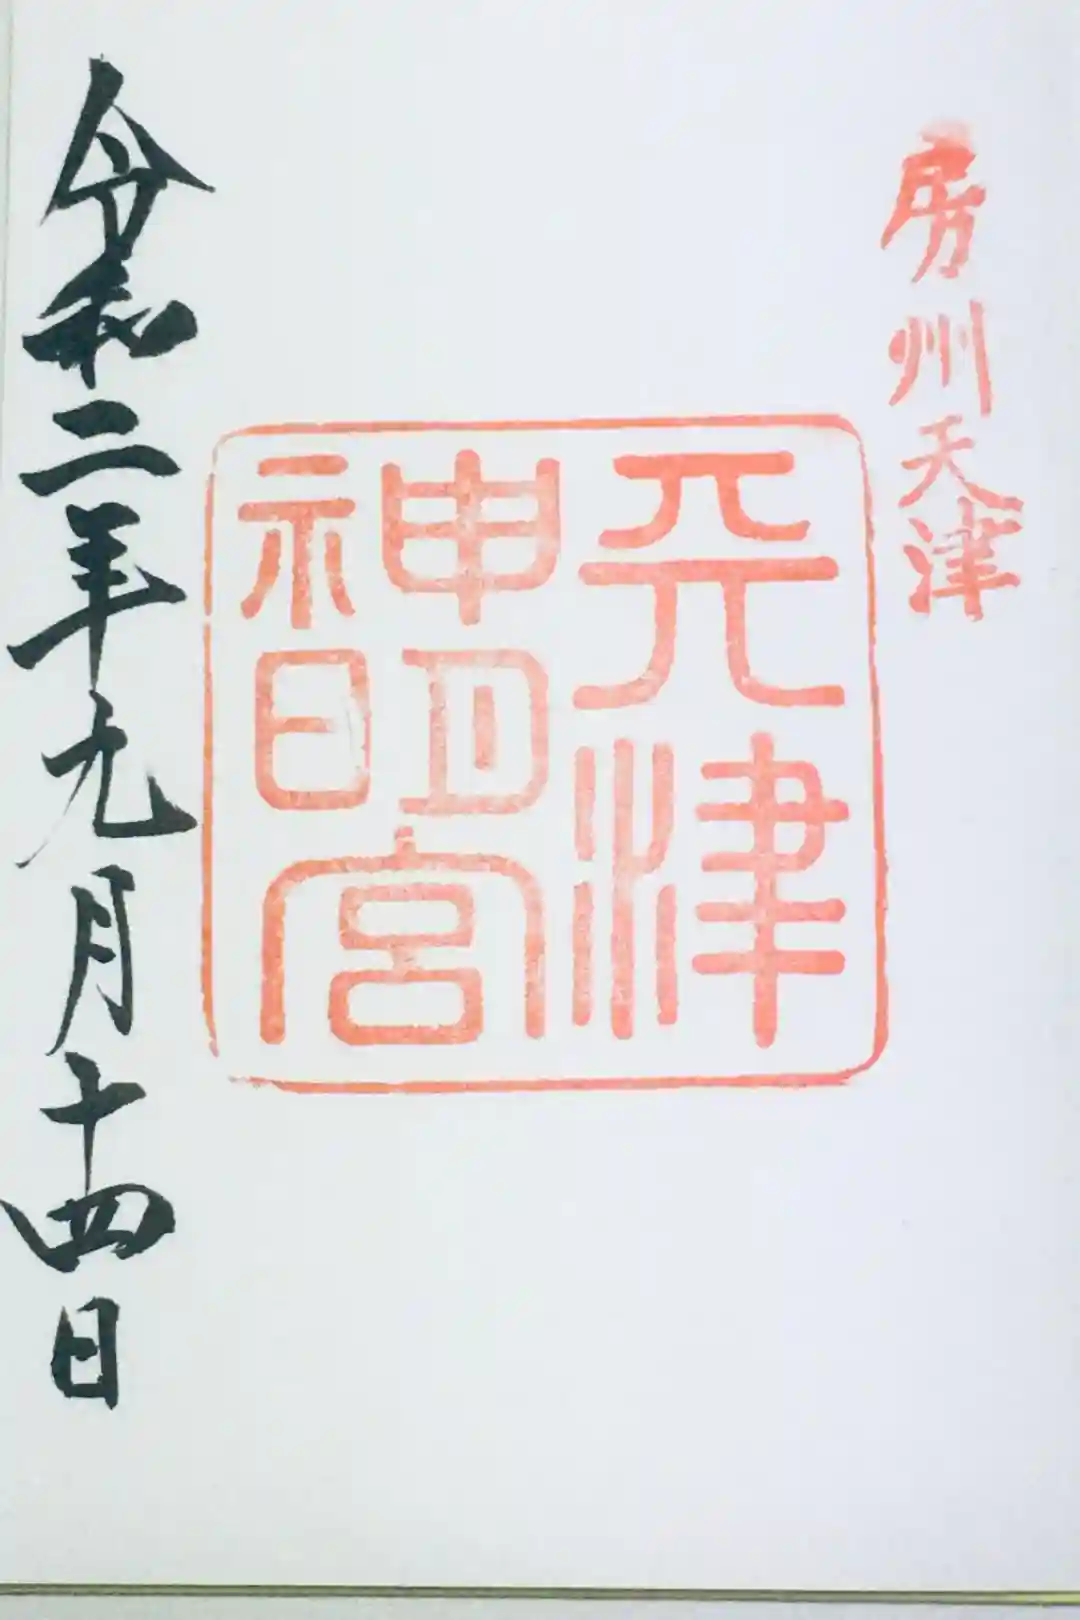 房州天津
天津
神明宮
令和二年九月十四日